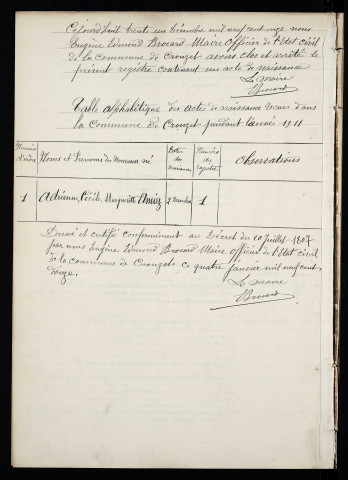 Cejourd'huit trente un Décembre mil neuf cent onze nous
Eugène Edmond Brocard Maire Officier de l'Etat civil
de la commune de Crouzet avons clos et arrêté le
présent registre contenant un acte de naissance
Le Maire
Brocard
Table alphabétique des actes de naissance reçus dans
la Commune de Crouzet pendant l'année 1911
Numéro d'ordre
Noms et Prénoms du nouveau né
Date des naissances
Numéro du registre
Observations
1 Adrienne, Cécile, Marguerite 1
Dressé et certifié conformément au Décret du 20 Juillet 1807
par nous Eugène Edmond Brocard Maire Officier de l'Etat civil
de la commune de Crouzet ce quatre janvier mil neuf cent
douze.
Le Maire
Brocard